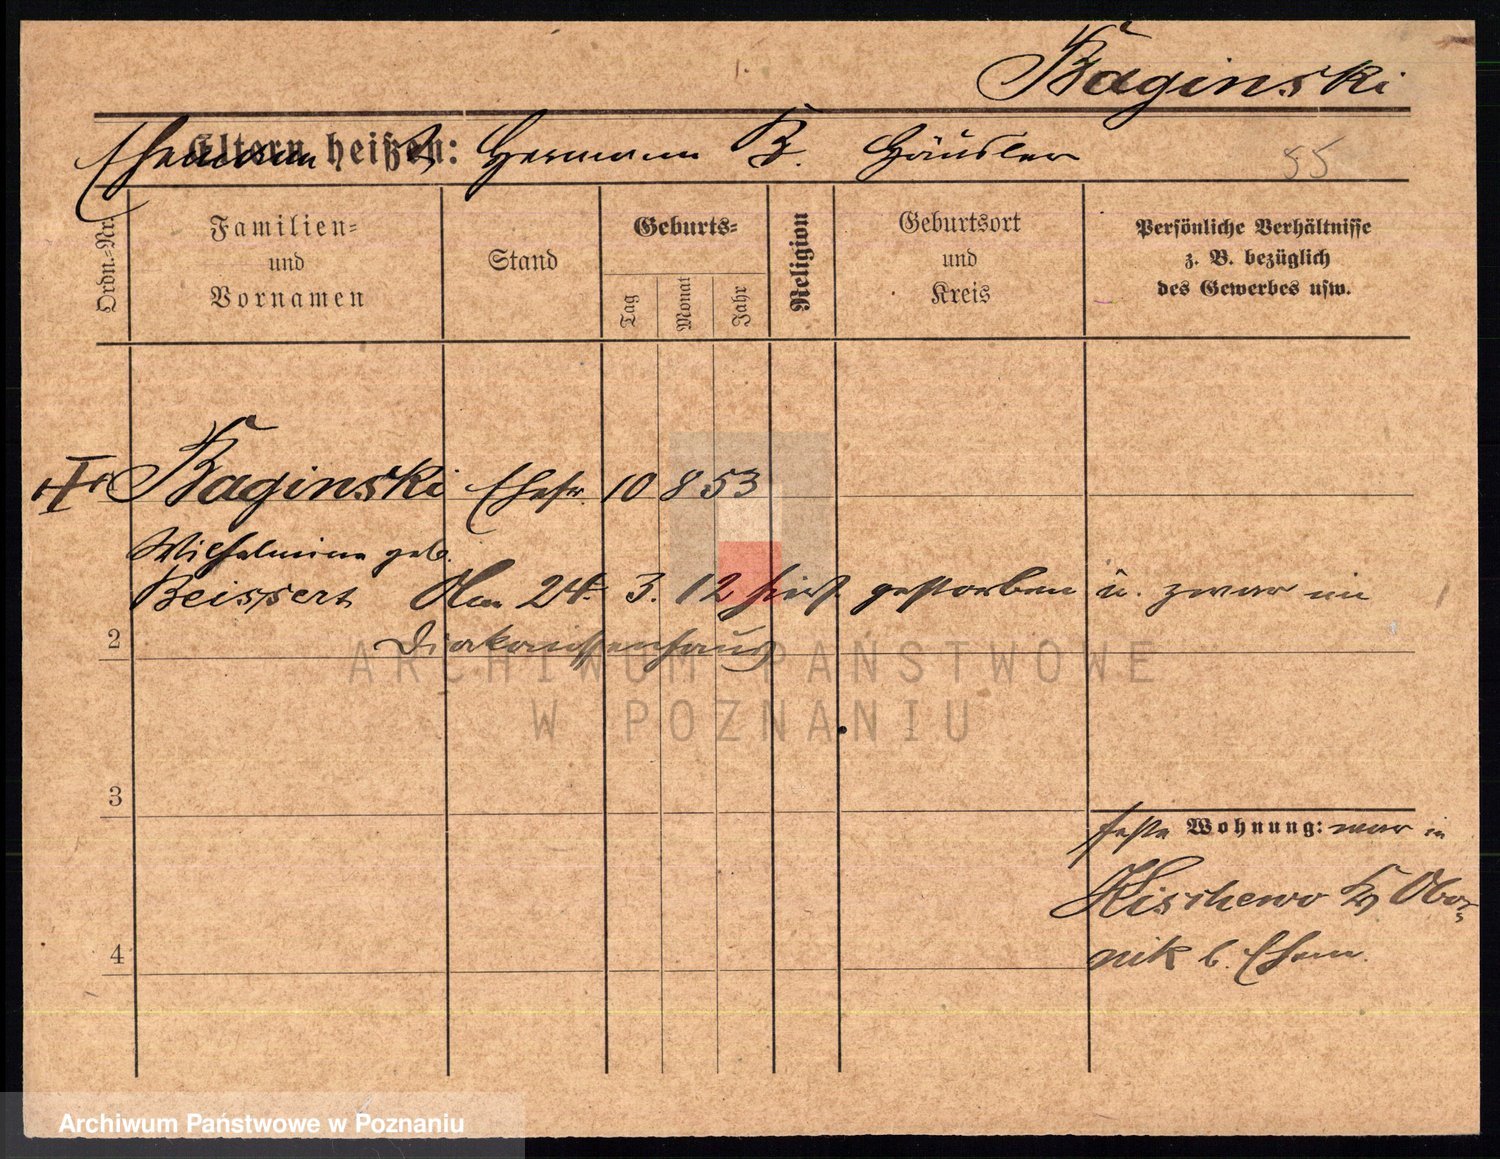 Baginski
Eltern heißen:
Ehemann Hermann B. Häusler
55
Ordn.-Nr.
Familien-
und
Vornamen
Stand
Geburts-
Tag
Monat
Jahr
Religion
Geburtsort
und
Kreis
Persönliche Verhältnisse
z. B. bezüglich
des Gewerbes usw.
Baginski Ehefr. 10 8 53
Wilhelmine geb.
Beissert Am 24. 3. 12 hier gestorben u. zwar im
Diakonissenhaus
2
ARCHIWUM PAŃSTWOWE
W POZNANIU
3
feste Wohnung: war in
Kischewo Kr Obor-
nik b. Ehem.
4
Archiwum Państwowe w Poznaniu